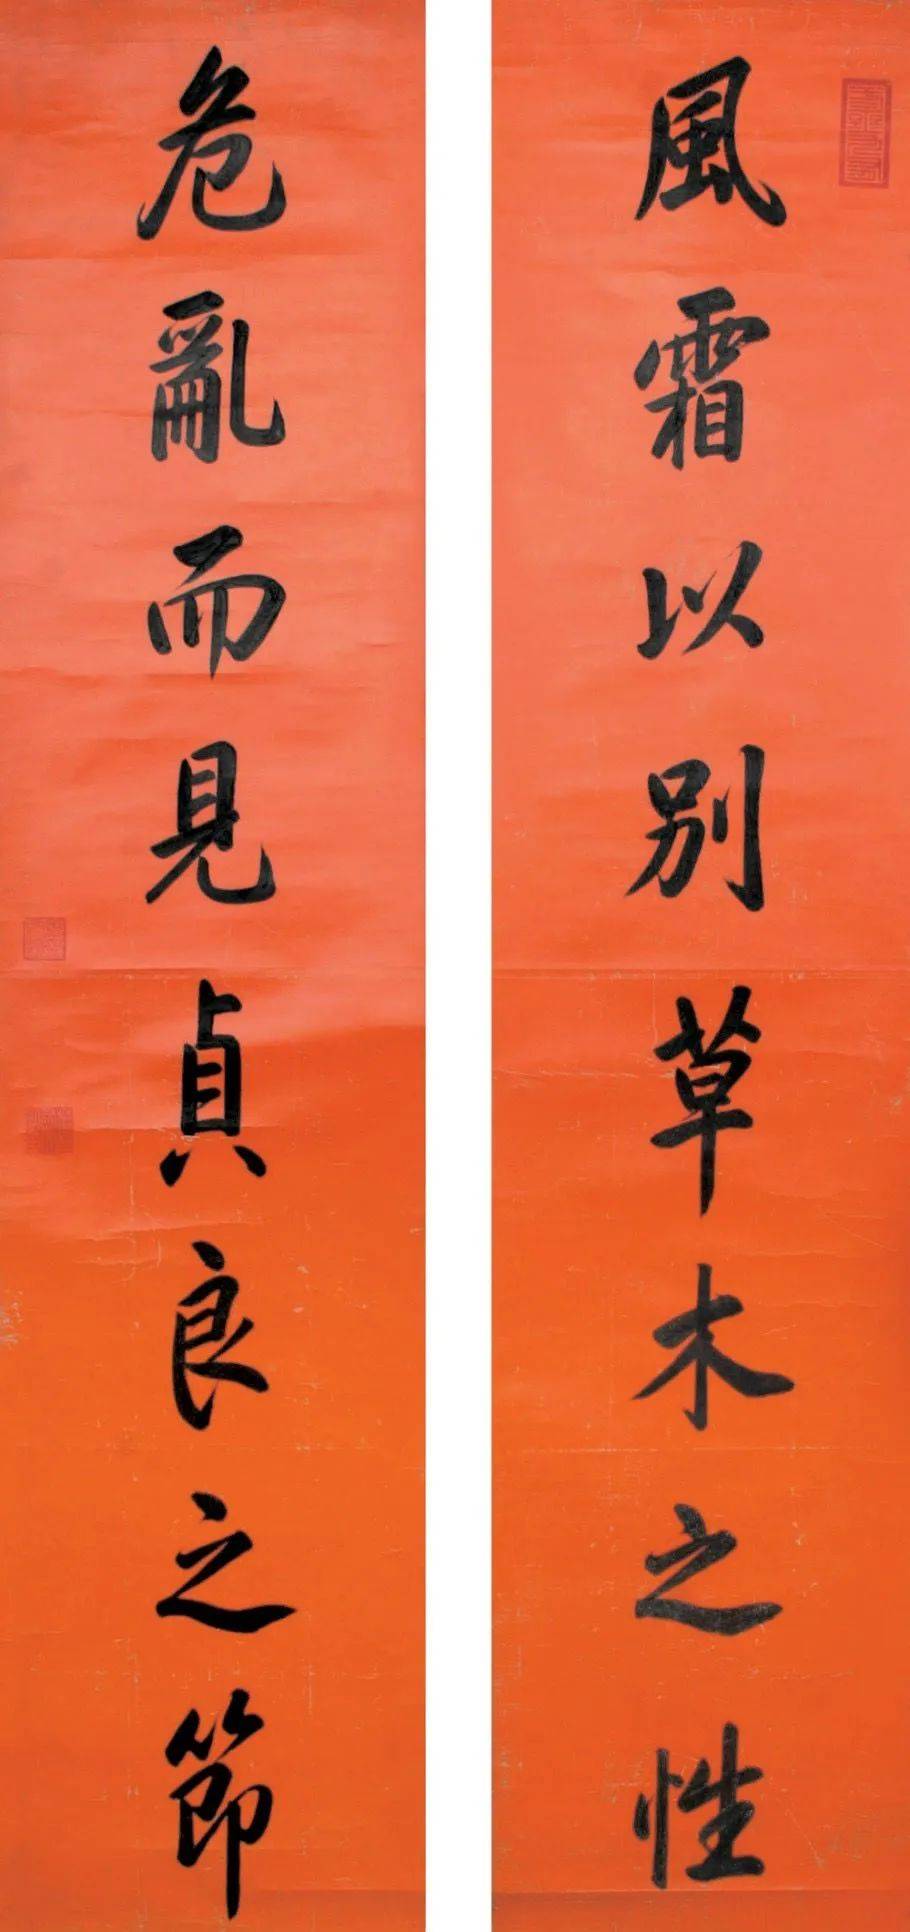 風霜以别草木之性
危亂而見貞良之節